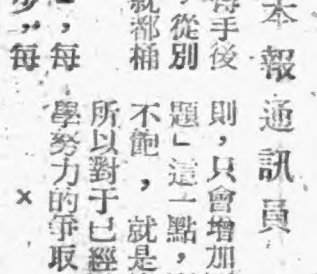 本報通訊員
手後
，從別
就都桶
，每
，每
則，只會增加
題」這一點，
不飽，就是
所以對于已經
學努力的爭取
×